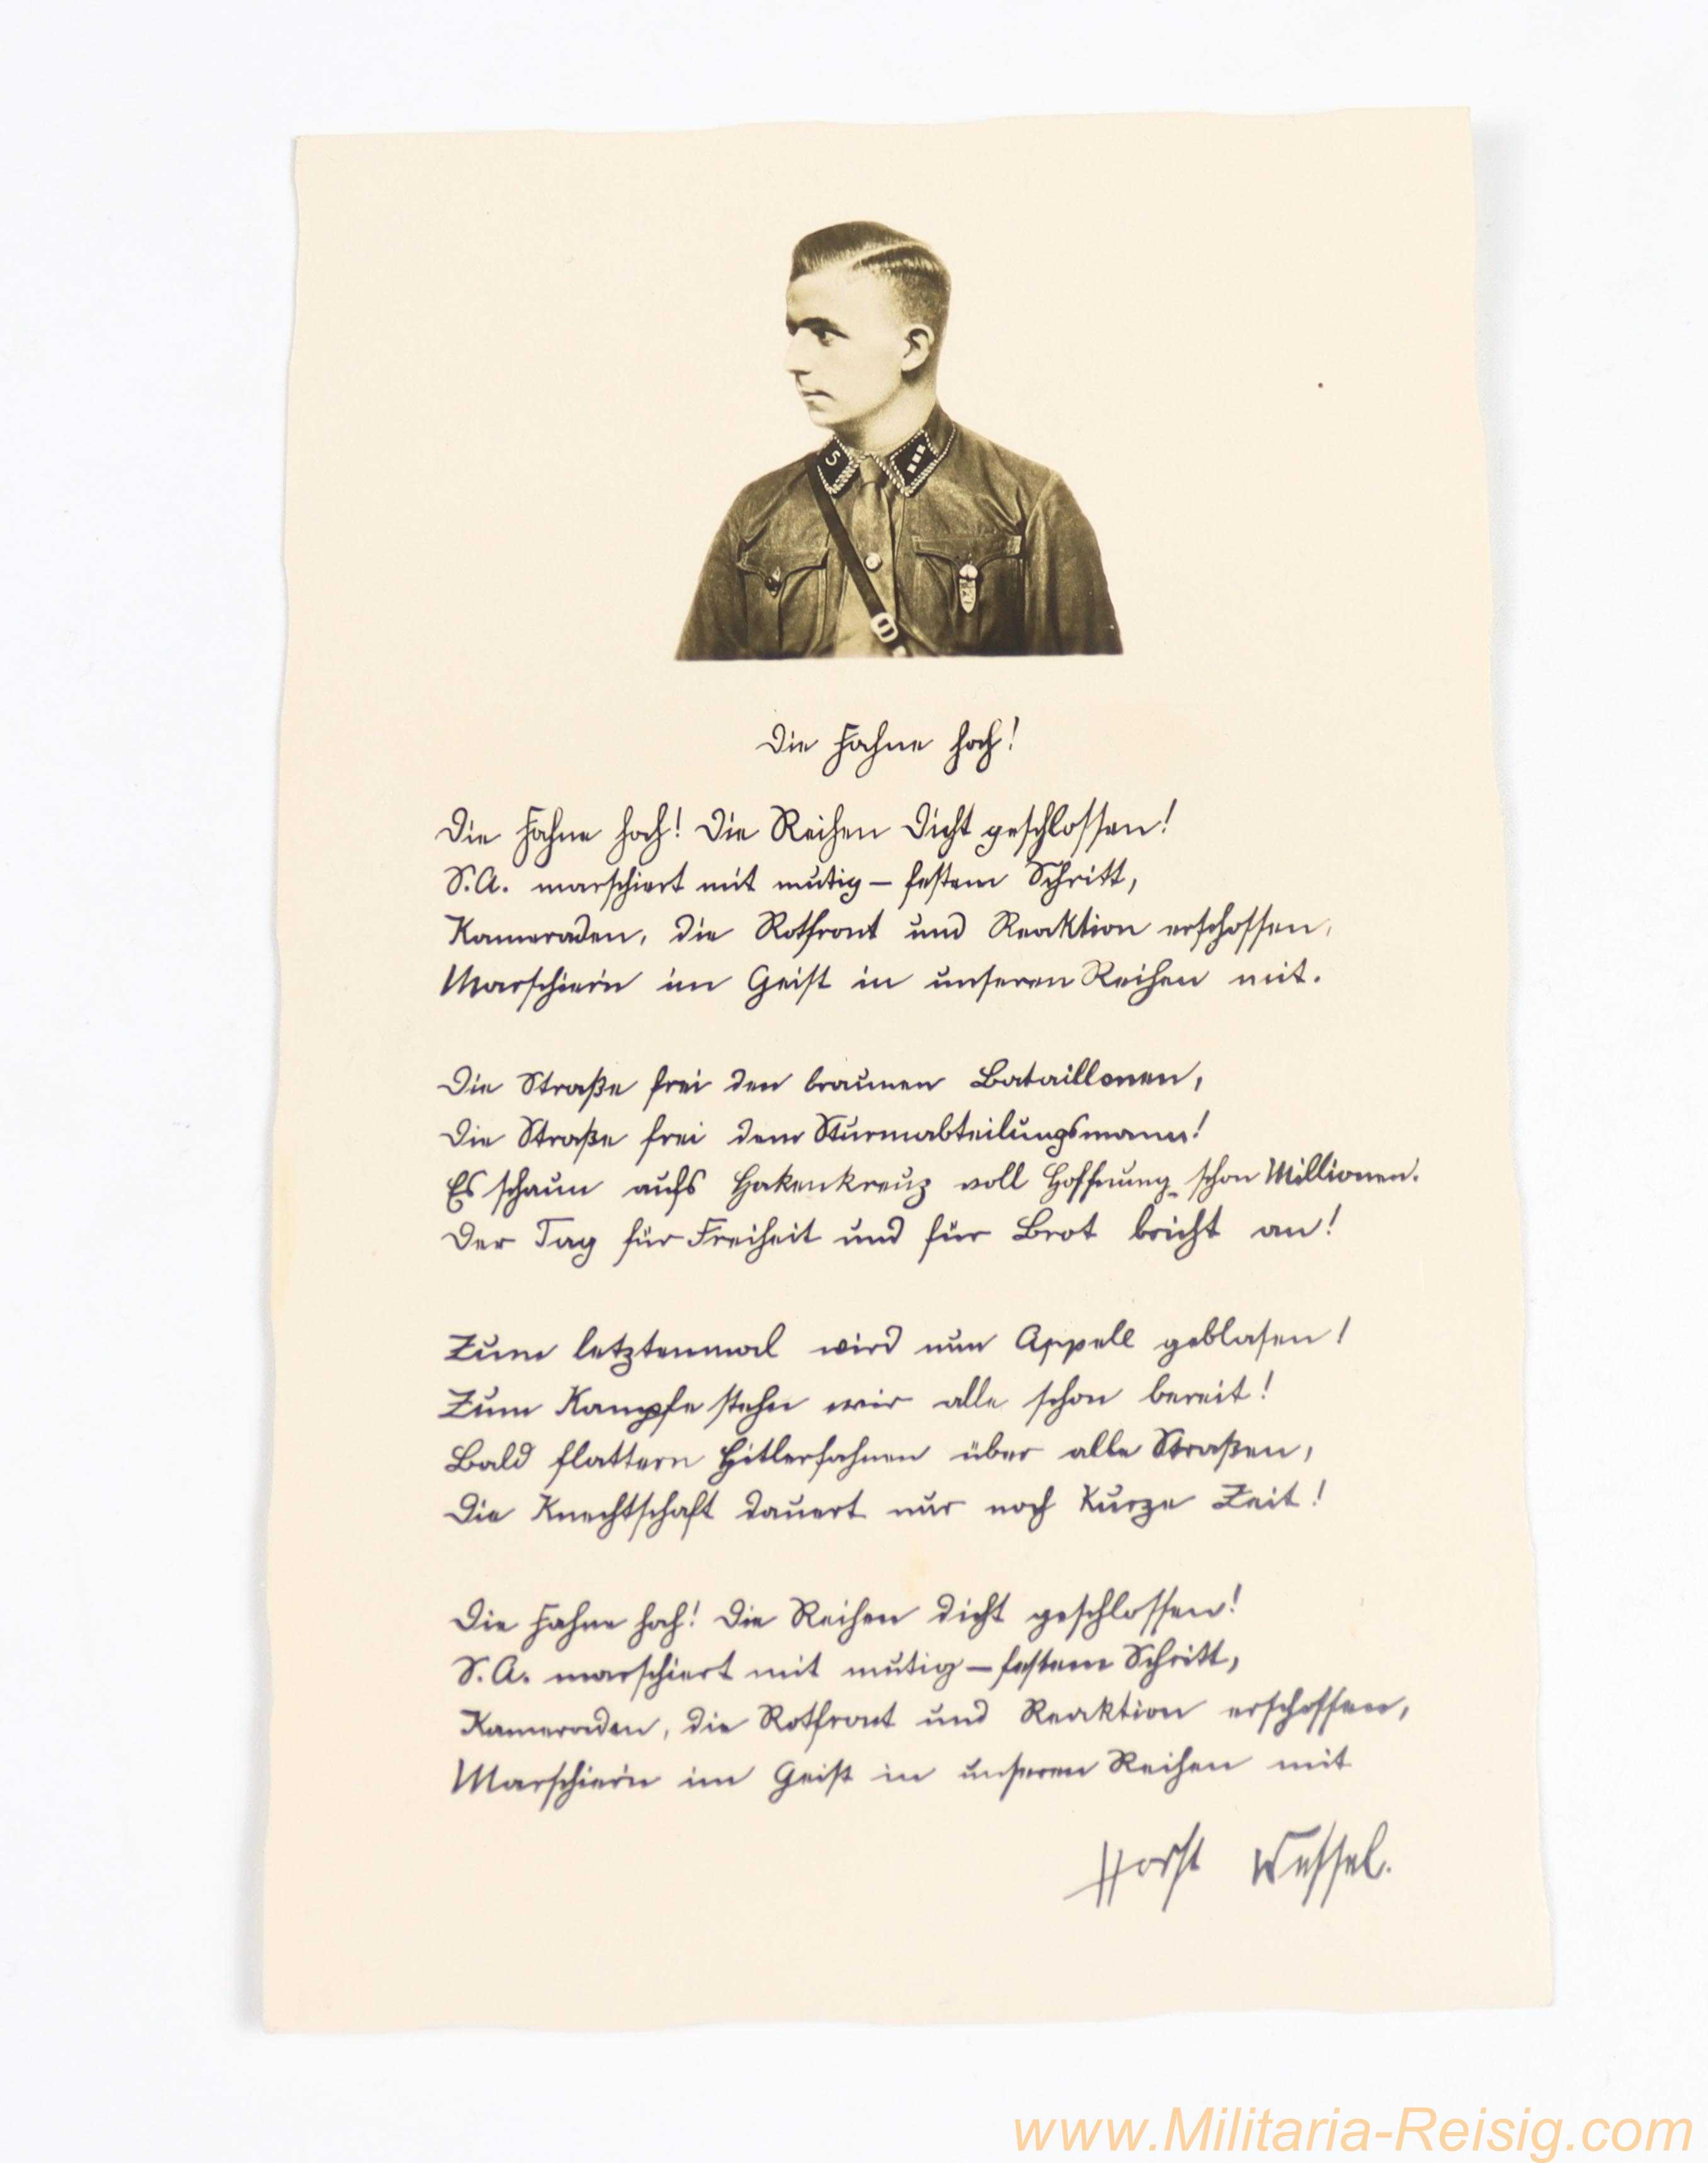 5
Die Fahne hoch!
Die Fahne hoch! Die Reihen dicht geschlossen!
S.A. marschiert mit mutig – festem Schritt,
Kameraden, die Rotfront und Reaktion erschossen,
Marschier'n im Geist in unseren Reihen mit.
Die Straße frei den braunen Bataillonen,
Die Straße frei dem Sturmabteilungsmann!
Es schaun aufs Hakenkreuz voll Hoffnung schon Millionen.
Der Tag für Freiheit und für Brot bricht an!
Zum letztenmal wird nun Appell geblasen!
Zum Kampfe stehn wir alle schon bereit!
Bald flattern Hitlerfahnen über alle Straßen,
Die Knechtschaft dauert nur noch kurze Zeit!
Die Fahne hoch! Die Reihen dicht geschlossen!
S.A. marschiert mit mutig – festem Schritt,
Kameraden, die Rotfront und Reaktion erschossen,
Marschier'n im Geist in unseren Reihen mit
Horst Wessel.
www.Militaria-Reisig.com